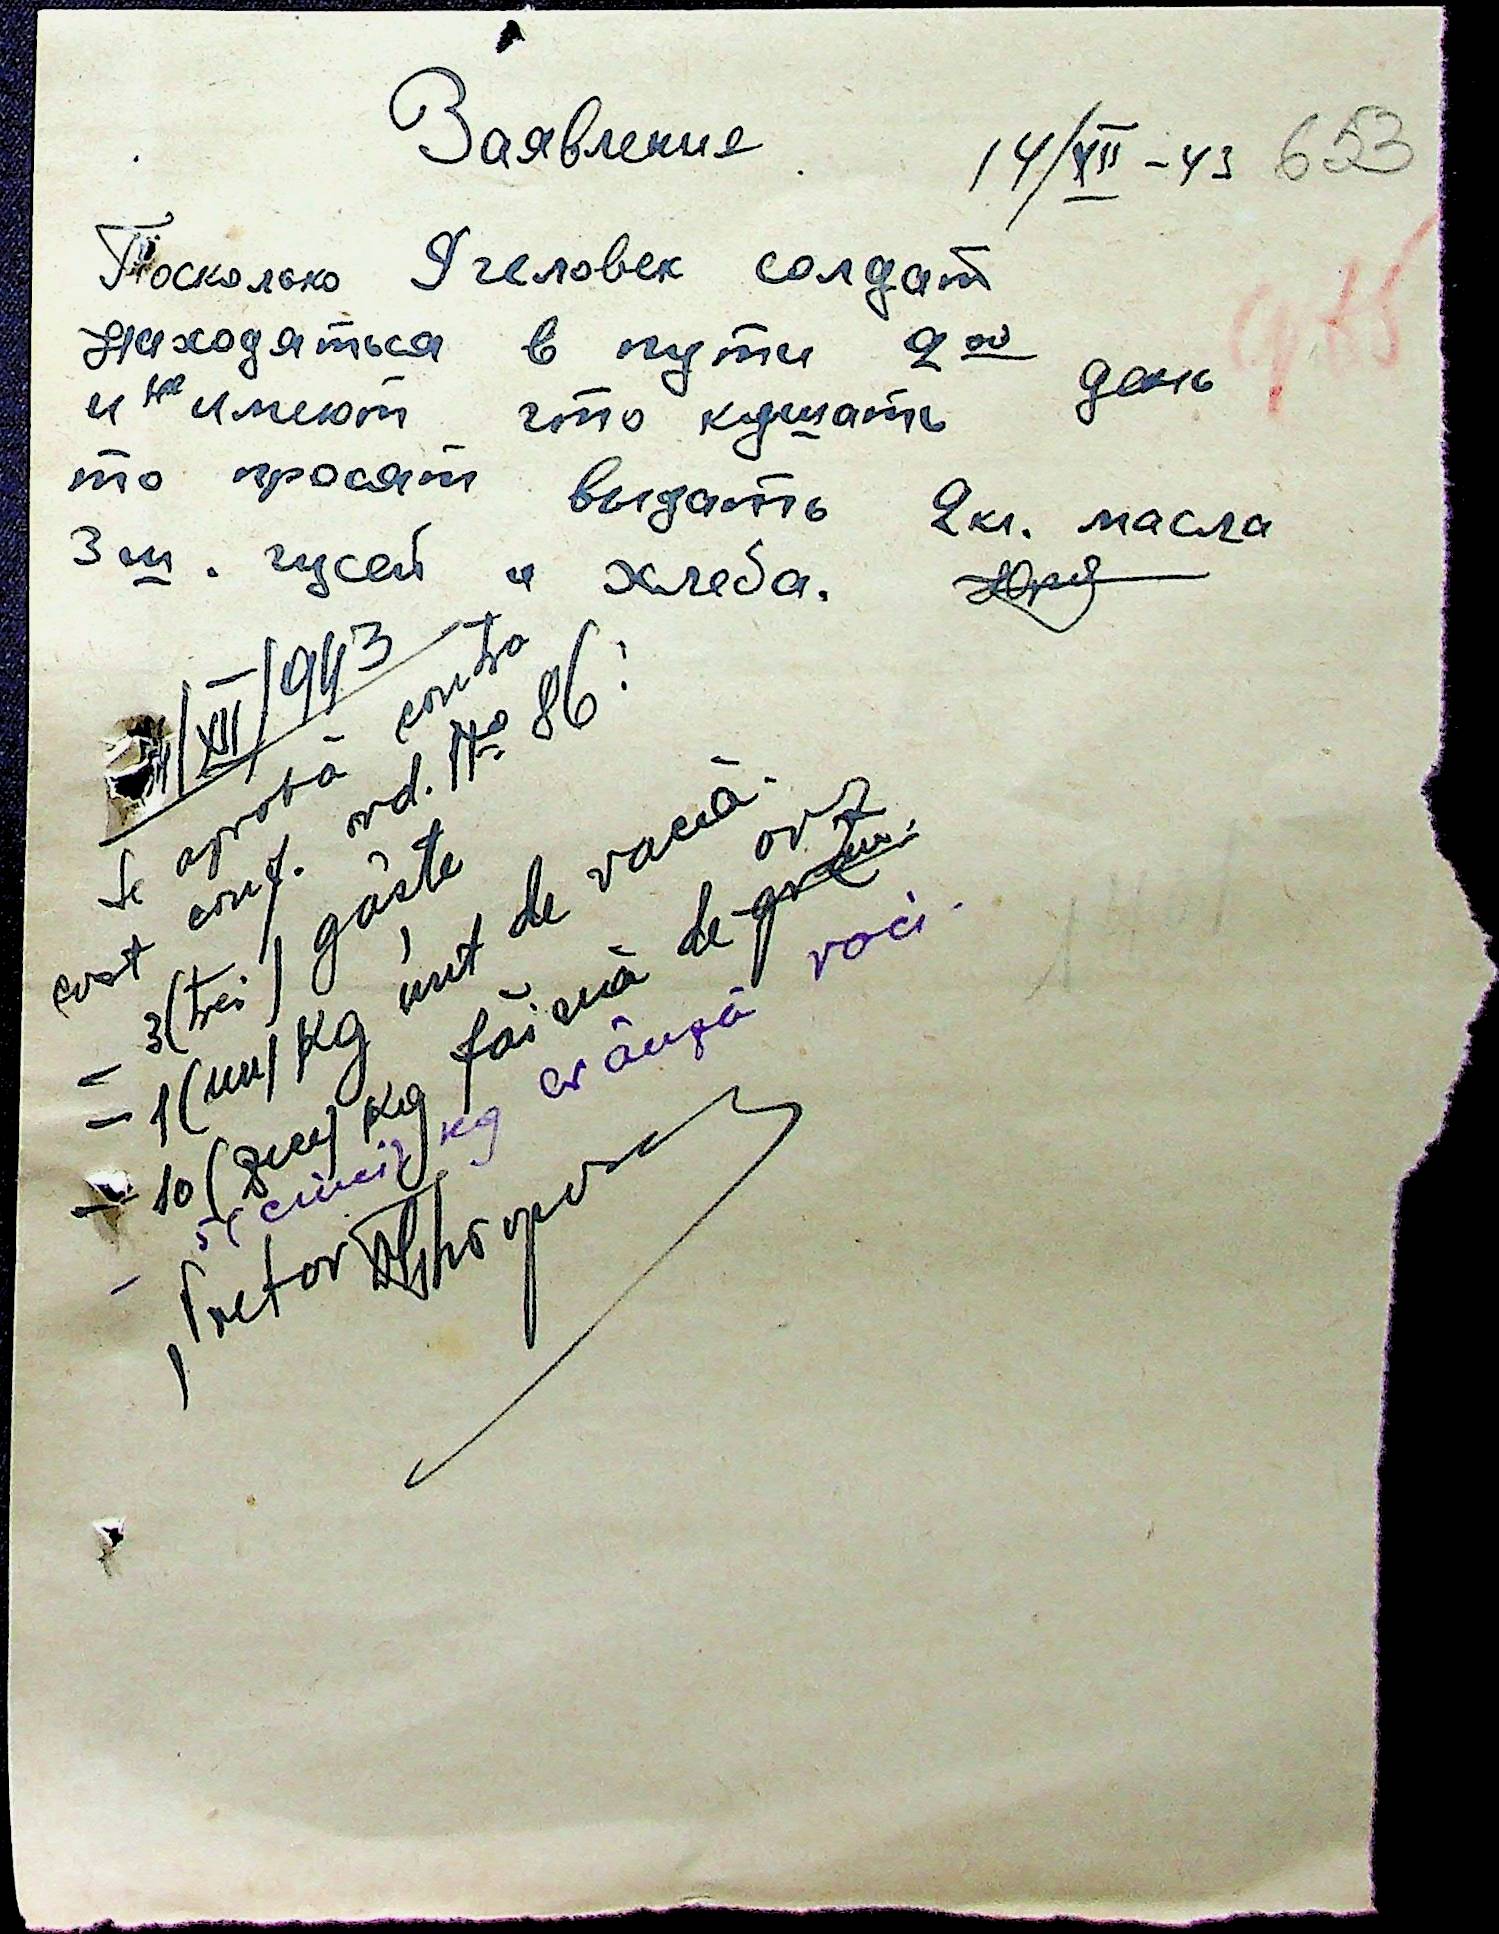 Заявление
14/XII-43 653
Поскольку 9 человек солдат
находяться в пути 2ой день
и не имеют что кушать
то просят выдать 2 кг. масла
3 ш. гусей и хлеба.
/XII/943
Se aprobă contra
cost conf. ord. No 86:
- 3 (trei) gâște
- 1 (un) kg unt de vacă.
orz
- 10 (zece) kg făină de grâu.
- 5 (cinci) kg crânză vaci.
Pretor